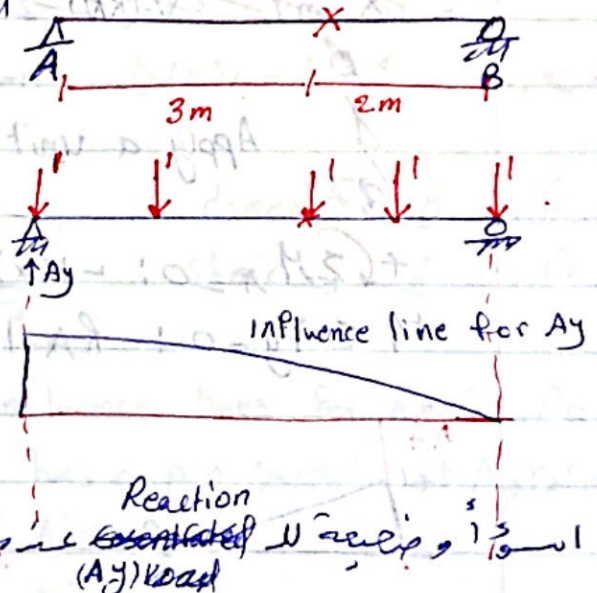 A
B
3m
2m
1 1 1 1 1
Ay
Influence line for Ay
Reaction
اسوأ وضعية لل
(Ay) Load